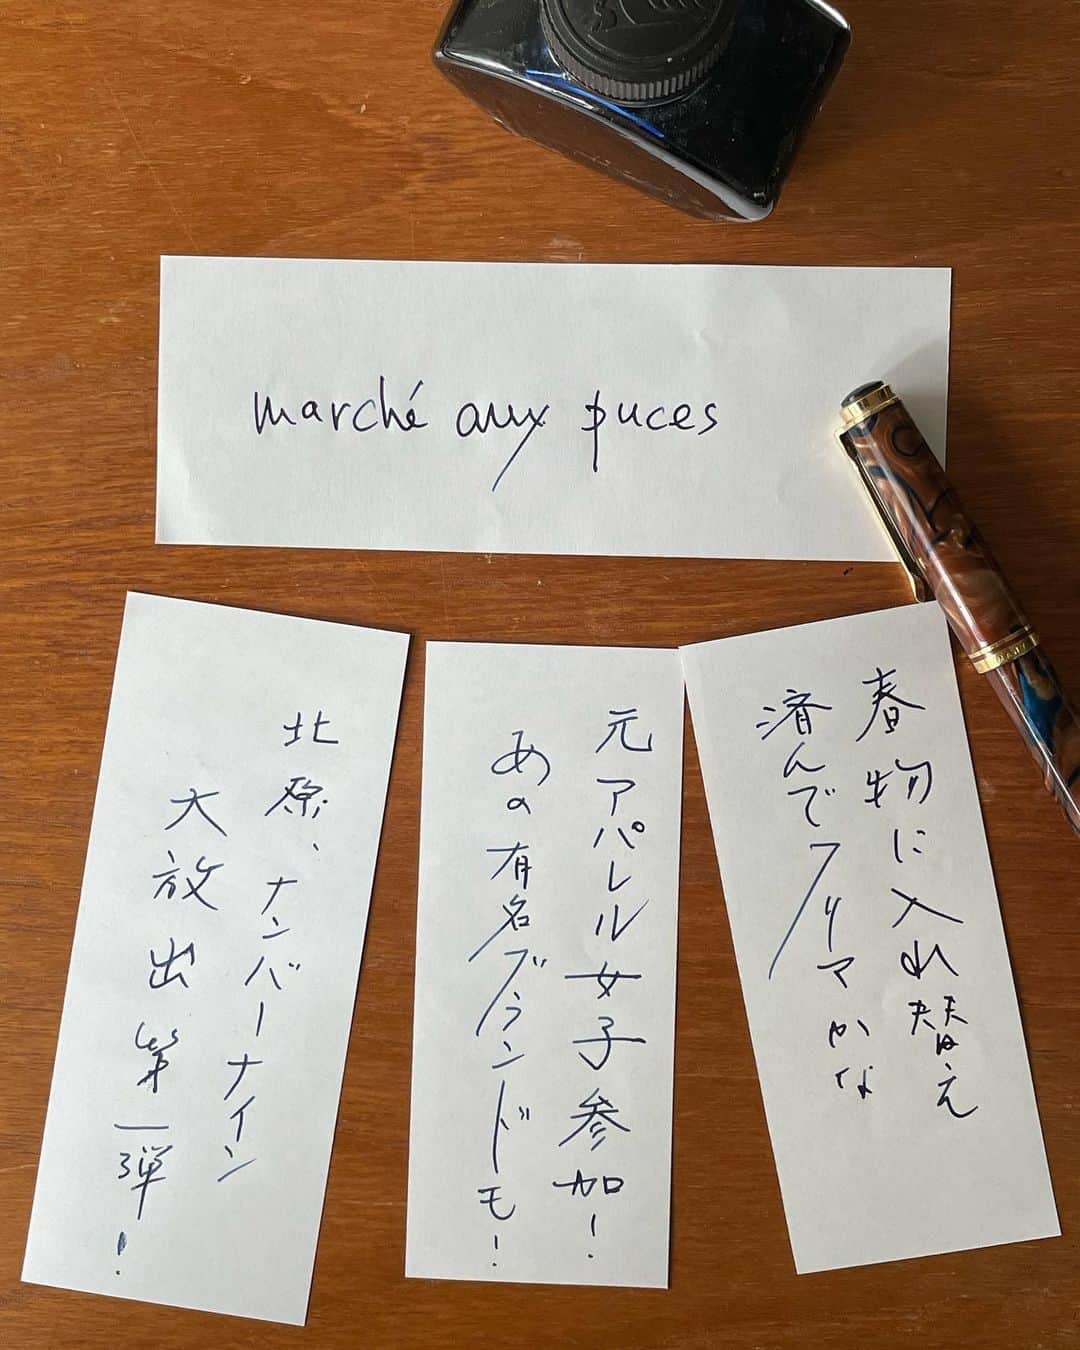 marché aux puces
春物に入れ替え
済んでフリマかな
元アパレル女子参加！
あの有名ブランドも！
北原、ナンバーナイン
大放出第一弾！